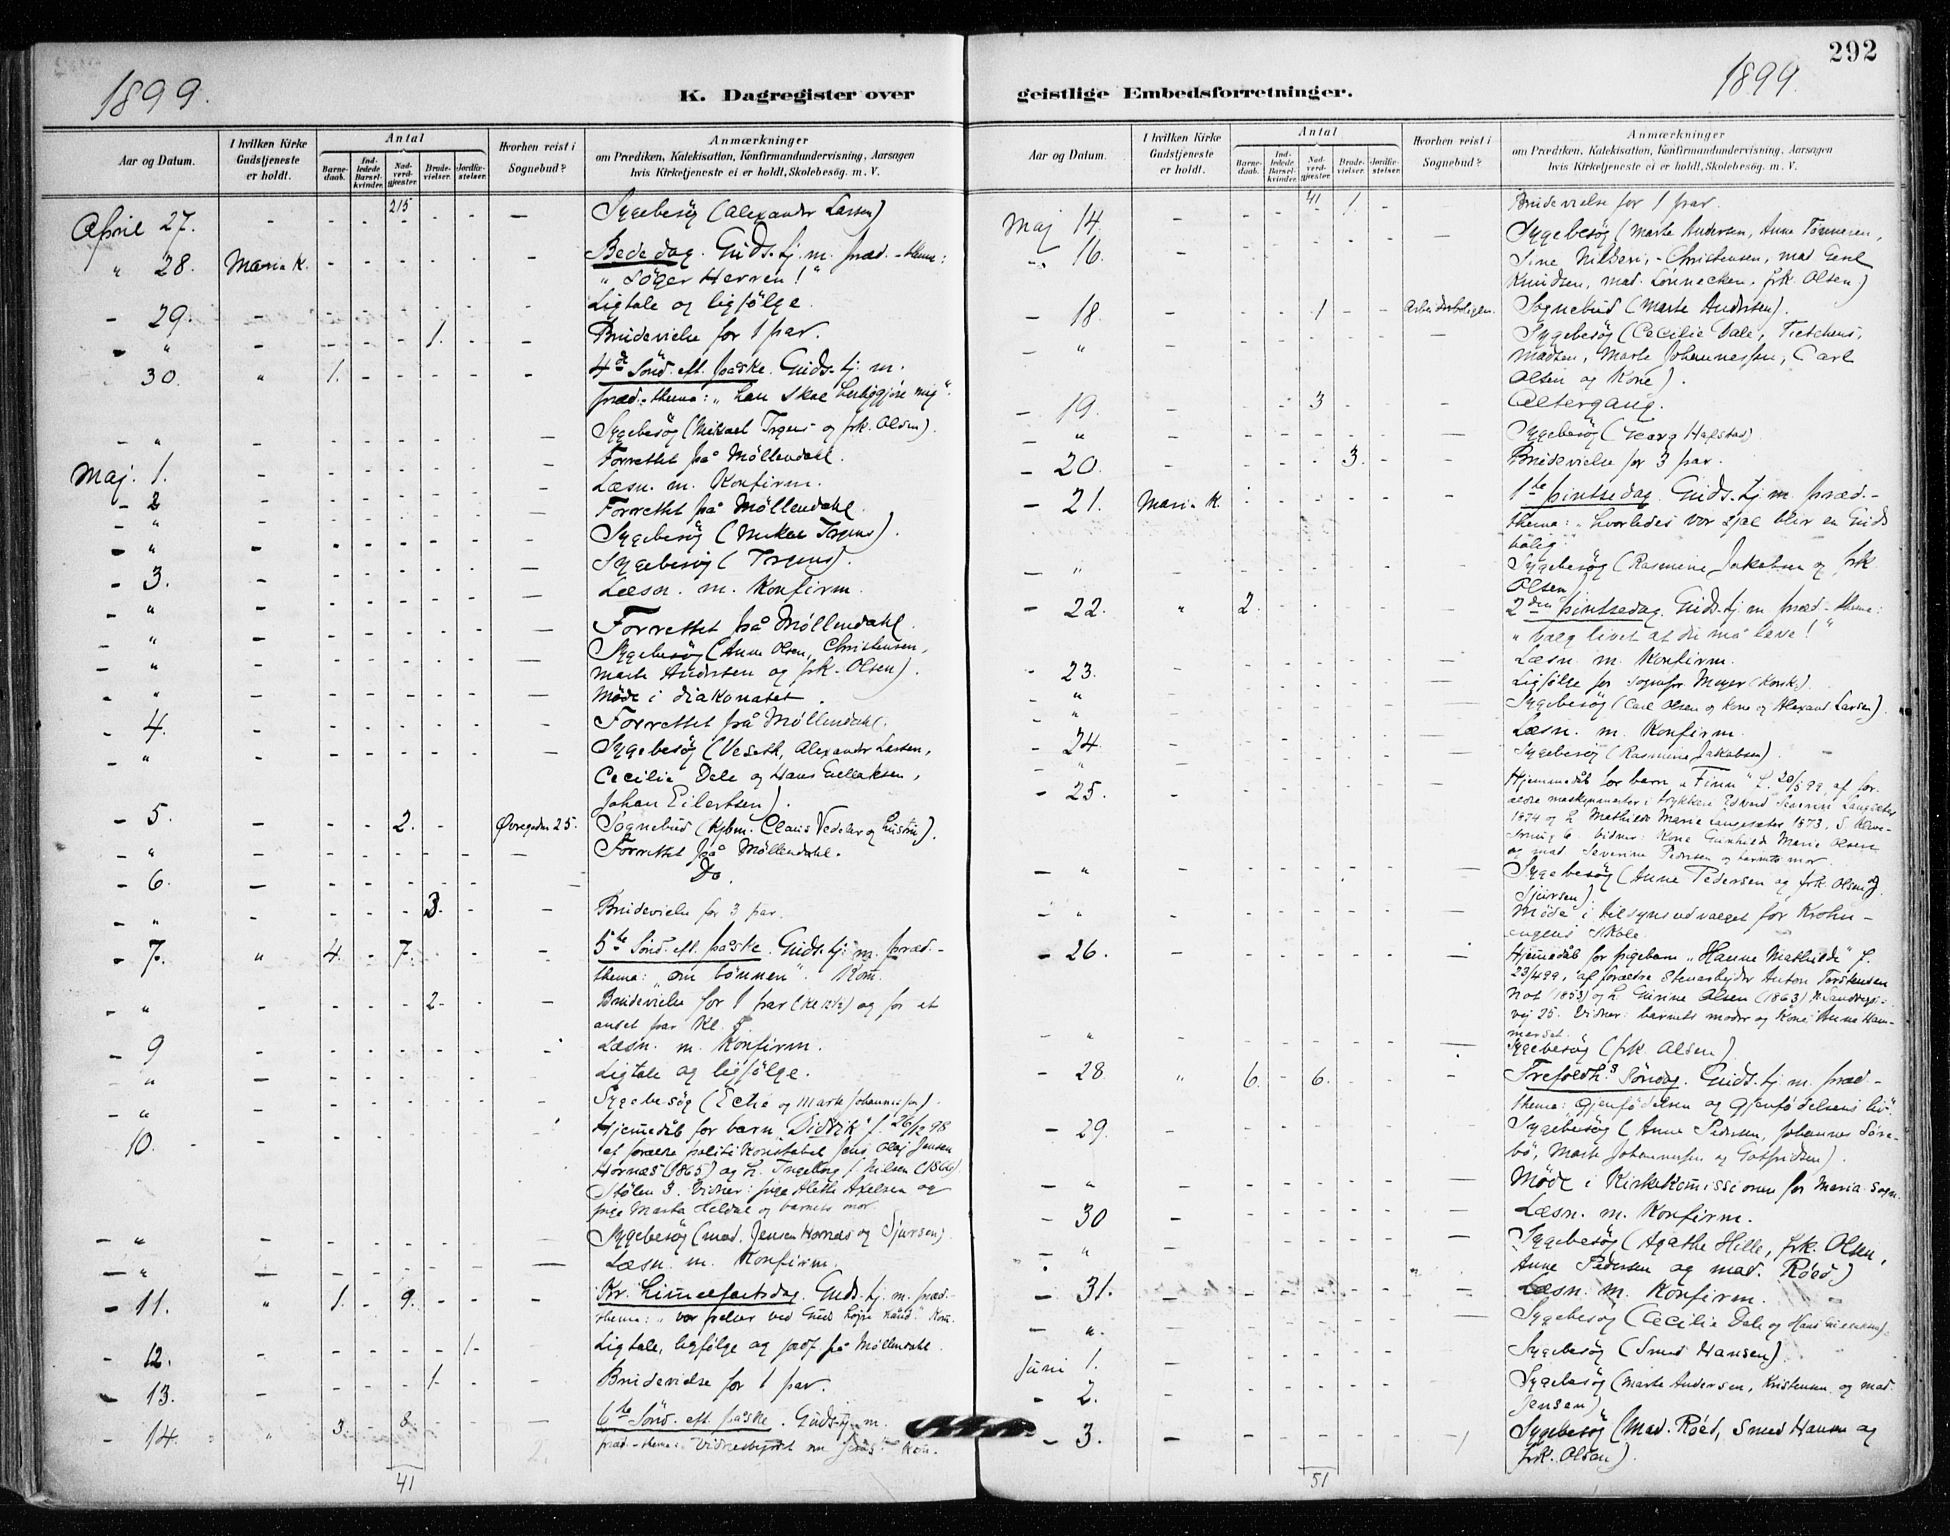 292
1899.
K. Dagregister over
Aar og Datum.
I hvilken Kirke Gudstjeneste er holdt.
Antal
Barnedaab.
Indledede Barselkvinder.
Nadverdgjester.
Brudevielser.
Jordfæstelser.
Hvorhen reist i Sognebud?
Anmærkninger
om Prædiken, Katekisation, Konfirmandundervisning, Aarsagen
hvis Kirketjeneste ei er holdt, Skolebesøg. m. V.
215
April 27. Sygebesög (Alexander Larsen)
" 28. Maria K. Bededag. Guds.tj. m. præd.-thema:
"Söger Herren!"
- 29. Ligtale og ligfölge.
- " 1. Brudevielse for 1 par.
30. " 1. 4de Sönd. eft. påske. Guds.tj. m.
præd.-thema: "han skal herliggjöre mig".
- " Sygebesög (Mikael Irgens og frk. Olsen).
Maj. 1. Forrettet på Møllendahl.
- 2 Læsn. m. Konfirm.
- " Forrettet på Møllendahl.
- " Sygebesög (Mikael Irgens).
- 3. Sygebesög (Irgens).
- " Læsn. m. Konfirm.
- " Forrettet på Møllendahl.
- " Sygebesög (Anne Olsen, Christensen,
Marte Andersen og frk. Olsen).
- " Møde i diakonatet.
- 4. Forrettet på Møllendahl.
- " Sygebesög (Veseth, Alexander Larsen,
Cecilie Dale og Hans
Johan Eilertsen).
- 5. 2. Øvregaden 25. Sognebud (Kjbm. Claus Vedeler og hustru).
- " Forrettet på Møllendahl.
- 6. Do.
- " 3. Brudevielse for 3 par.
- 7. " 4. 7. 5te Sönd. eft. påske. Guds.tj. m. præd.-
thema: "om bönnen". Kom.
- " 2. Brudevielse for 1 par (kl. 12½) og for et
andet par kl. 5.
- 9 Læsn. m. Konfirm.
- " Ligtale og ligfölge.
- " Sygebesög (og Marte Johannesen).
10. Hjemmedåb for barn "Didrik" f. 26/12 98
af forældre politikonstabel Jens Olaj Jensen
Hornæs (1865) og h. Ingeborg f. Nilsen (1866).
Stølen 3. Vidner: pige Alette Axelsen og
pige Marta Heldal og barnets mor.
- " Sygebesög (mad. Jensen Hornæs og Sjursen).
- " Læsn. m. Konfirm.
- 11. " 1. 9. Kr. himmelfartsdag. Guds.tj. m. præd.-
thema: "vor frelser ved Guds höjre hånd." Kom.
- 12. 1. Ligtale, ligfölge og jordf. på Møllendahl.
- 13. 1. Brudevielse for 1 par.
- 14. " 3. 8 6te Sönd. eft. påske. Guds.tj. m.
præd.-thema: Vidnesbyrdet om Jesus". Kom.
41
geistlige Embedsforretninger.
1899.
Aar og Datum.
I hvilken Kirke Gudstjeneste er holdt.
Antal
Barnedaab.
Indledede Barselkvinder.
Nadverdgjester.
Brudevielser.
Jordfæstelser.
Hvorhen reist i Sognebud?
Anmærkninger
om Prædiken, Katekisation, Konfirmandundervisning, Aarsagen
hvis Kirketjeneste ei er holdt, Skolebesøg. m. V.
41
Maj 14. 1. Brudevielse for 1 par.
- 16. Sygebesög (Marte Andersen, Anne Tönnesen,
Sine Nilsen, - Christensen, mad.
Knudsen, mad. Lönnecken, frk. Olsen)
- 18. 1 Arbeiderboligen. Sognebud (Marte Andersen).
" Sygebesög (Cecilie Dale, Tietchens,
Madsen, Marte Johannessen, Carl
Olsen og Kone).
- 19. 3 Altergang.
- " Sygebesög (Georg Hafstad)
- 20. 3. Brudevielse for 3 par.
- 21. Maria K. 1te pintsedag. Guds.tj. m. præd.-
thema: "hvorledes vor sjæl blir en Guds
bolig".
- " Sygebesög (Rasmine Jakobsen og frk.
Olsen)
- 22. " 2. 2den pintsedag. Guds.tj. m. præd.-thema:
"Vælg livet at du må leve!"
- 23. Læsn. m. Konfirm.
" Ligfölge for sognepr. Meyer (Korsk.).
" Sygebesög (Carl Olsen og Kone og Alexand. Larsen).
- 24. Læsn. m. Konfirm.
" Sygebesög (Rasmine Jakobsen).
- 25. Hjemmedåb for barn "Finn" f. 20/5 99, af for-
ældre maskinmester i trykkeri Edvard Severin Langsæter
1874 og h. Mathilde Marie Langsæter 1873.
6. Vidner: Kone Gunhild Marie Olsen
og mad. Severine Pedersen og barnets mor.
- " Sygebesög (Anne Pedersen og frk. Olsen og
Sjursen).
- " Møde i tilsynsudvalget for Krohn-
engens skole.
- 26. Hjemmedåb for pigebarn "Hanne Mathilde" f.
23/4 99, af forældre Stenarbejder Anton Torstensen
(1853) og h. Gurine Olsen (1863) N. Sandvigs-
vej 25. Vidner: barnets moder og Kone Anne Ham-
merset.
" Sygebesög (frk. Olsen)
- 28. " 6. 6. Trefoldh.s Söndag. Guds.tj. m. præd.-
thema: Gjenfödelsen og Gjenfödelsens liv".
- 29. Sygebesög (Anne Pedersen, Johannes Söre-
bö, Marte Johannessen og Gotfridsen).
- " Møde i Kirkekomissionen for Maria sogn.
- 30 Læsn. m. Konfirm.
- " Sygebesög (Agathe Hille, frk. Olsen,
Anne Pedersen og mad. Röed)
- 31. Læsn. m. Konfirm.
- ". Sygebesög (Cecilie Dale og Hans
Juni 1. Sygebesög (Smed Hansen).
- 2. Sygebesög (Marte Andersen, Kristensen og mad.
Jensen)
- 3. Sygebesög (Mad. Röed, Smed Hansen og
frk. Olsen)
51